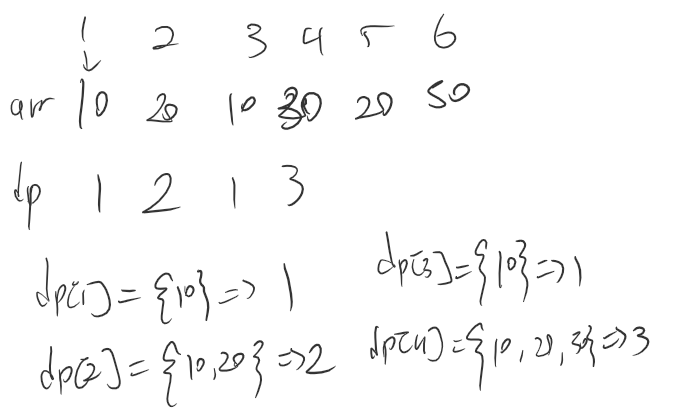 1 2 3 4 5 6
↓
arr 10 20 10 30 20 50
dp 1 2 1 3
dp[1] = {10} => 1
dp[3] = {10} => 1
dp[2] = {10, 20} => 2
dp[4] = {10, 20, 30} => 3